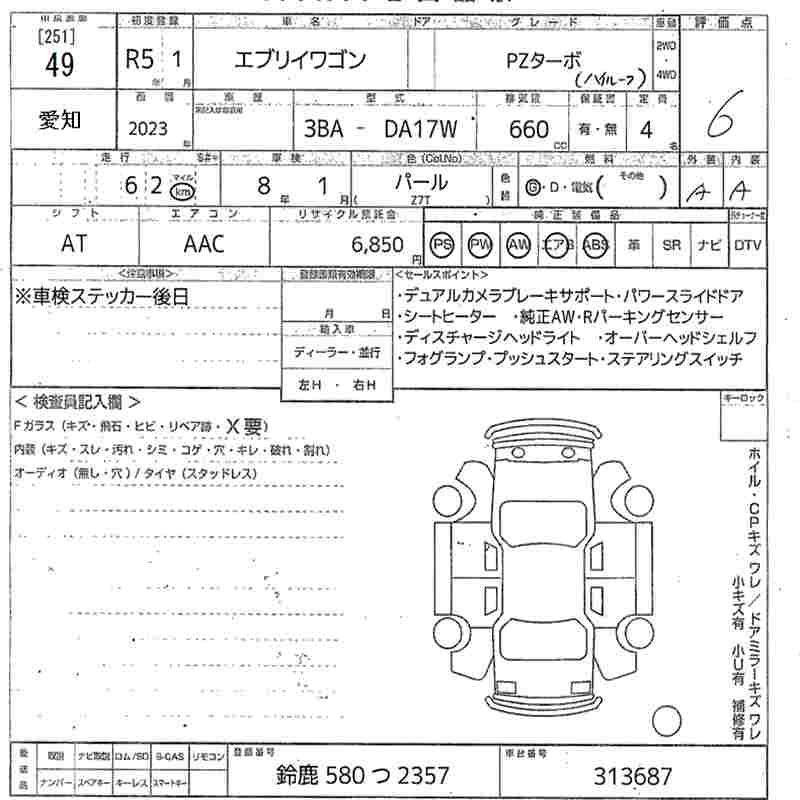 [251]
49
初度登録 車名 ドア グレード 車類 評価点
R5 1 エブリイワゴン PZターボ 2WD ・ 4WD
年 月 (ハイルーフ)
6
愛知
車歴 型式 排気量 保証書 定員
2023 3BA - DA17W 660 有・無 4
年 CC 名
走行 車検 色(Col.No) 燃料 外装 内装
62 マイル km 8 年 1 月 パール 色替 G・D・電気( その他 ) A A
( Z7T )
シフト エアコン リサイクル預託金 純正装備品
AT AAC 6,850 円 PS PW AW エアB ABS 革 SR ナビ DTV
<注意事項> 登録書類有効期限 <セールスポイント>
※車検ステッカー後日
月 日
輸入車
ディーラー・並行
左H ・ 右H
・デュアルカメラブレーキサポート・パワースライドドア
・シートヒーター ・純正AW・Rパーキングセンサー
・ディスチャージヘッドライト ・オーバーヘッドシェルフ
・フォグランプ・プッシュスタート・ステアリングスイッチ
< 検査員記入欄 >
Fガラス (キズ・飛石・ヒビ・リペア跡・X要)
内装 (キズ・スレ・汚れ・シミ・コゲ・穴・キレ・破れ・割れ)
オーディオ (無し・穴) / タイヤ (スタッドレス)
キーロック
ホイル・CPキズ ワレ / ドアミラーキズ ワレ
小キズ有 小U有 補修有
後送品 取説 ナビ取説 ロム/SD B-CAS リモコン
ナンバー スペアキー キーレス スマートキー
登録番号 車台番号
鈴鹿 580 つ 2357 313687